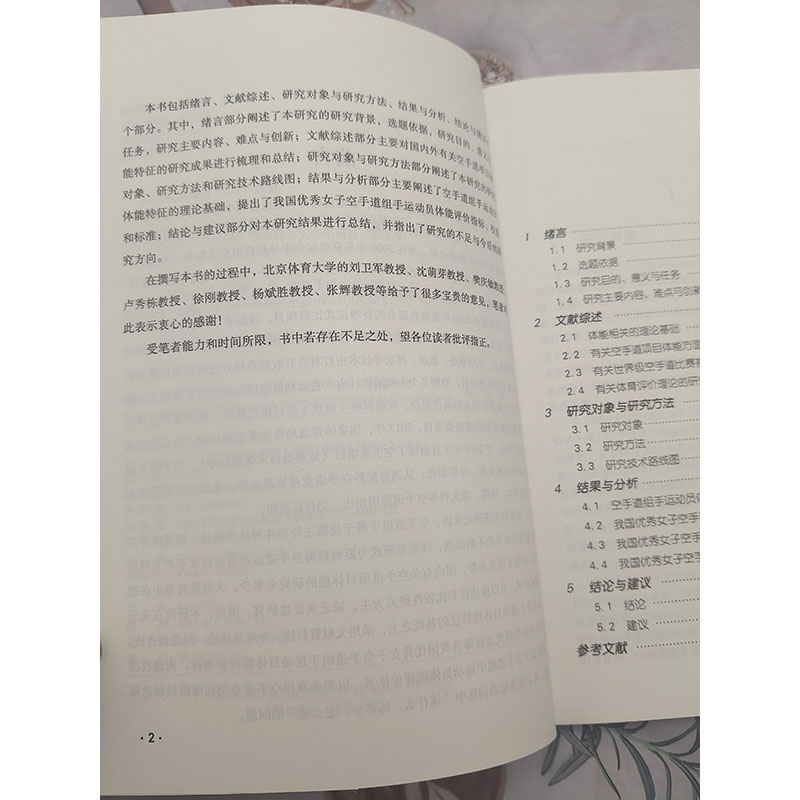 本书包括绪言、文献综述、研究对象与研究方法、结果与分析、结论与建议
个部分。其中，绪言部分阐述了本研究的研究背景，选题依据，研究目的、意义
任务，研究主要内容、难点与创新；文献综述部分主要对国内外有关空手道项目
能特征的研究成果进行梳理和总结；研究对象与研究方法部分阐述了本研究的研究
对象、研究方法和研究技术路线图；结果与分析部分主要阐述了空手道组手运动
体能特征的理论基础，提出了我国优秀女子空手道组手运动员体能评价指标、权重
和标准；结论与建议部分对本研究结果进行总结，并指出了研究的不足与今后
究方向。
在撰写本书的过程中，北京体育大学的刘卫军教授、沈萌芽教授、樊庆敏教授、
卢秀栋教授、徐刚教授、杨斌胜教授、张辉教授等给予了很多宝贵的意见，笔者
此表示衷心的感谢！
受笔者能力和时间所限，书中若存在不足之处，望各位读者批评指正。
· 2 ·
1 绪言
1.1 研究背景
1.2 选题依据
1.3 研究目的、意义与任务
1.4 研究主要内容、难点与创新
2 文献综述
2.1 体能相关的理论基础
2.2 有关空手道项目体能方面
2.3 有关世界级空手道比赛基
2.4 有关体育评价理论的研
3 研究对象与研究方法
3.1 研究对象
3.2 研究方法
3.3 研究技术路线图
4 结果与分析
4.1 空手道组手运动员体
4.2 我国优秀女子空手
4.3 我国优秀女子空手道
4.4 我国优秀女子空手
5 结论与建议
5.1 结论
5.2 建议
参考文献